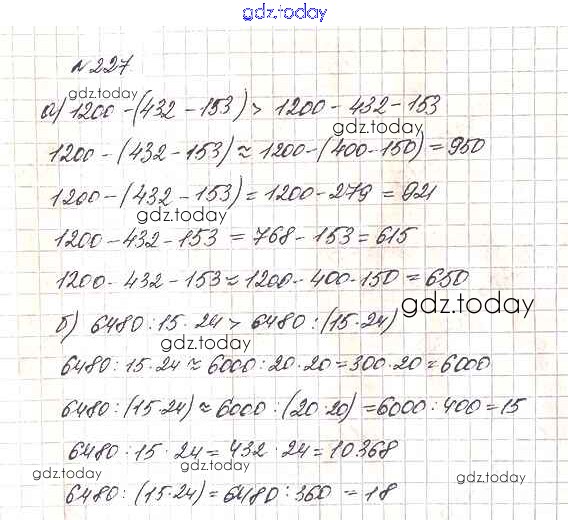 gdz.today
№ 227.
gdz.today
а) 1200 - (432 - 153) > 1200 - 432 - 153
gdz.today
1200 - (432 - 153) ≈ 1200 - (400 - 150) = 950
1200 - (432 - 153) = 1200 - 279 = 921
gdz.today
1200 - 432 - 153 = 768 - 153 = 615
1200 - 432 - 153 ≈ 1200 - 400 - 150 = 650
gdz.today
б) 6480 : 15 · 24 > 6480 : (15 · 24)
gdz.today
6480 : 15 · 24 ≈ 6000 : 20 · 20 = 300 · 20 = 6000
6480 : (15 · 24) ≈ 6000 : (20 · 20) = 6000 : 400 = 15
6480 : 15 · 24 = 432 · 24 = 10368
gdz.today gdz.today gdz.today
6480 : (15 · 24) = 6480 : 360 = 18